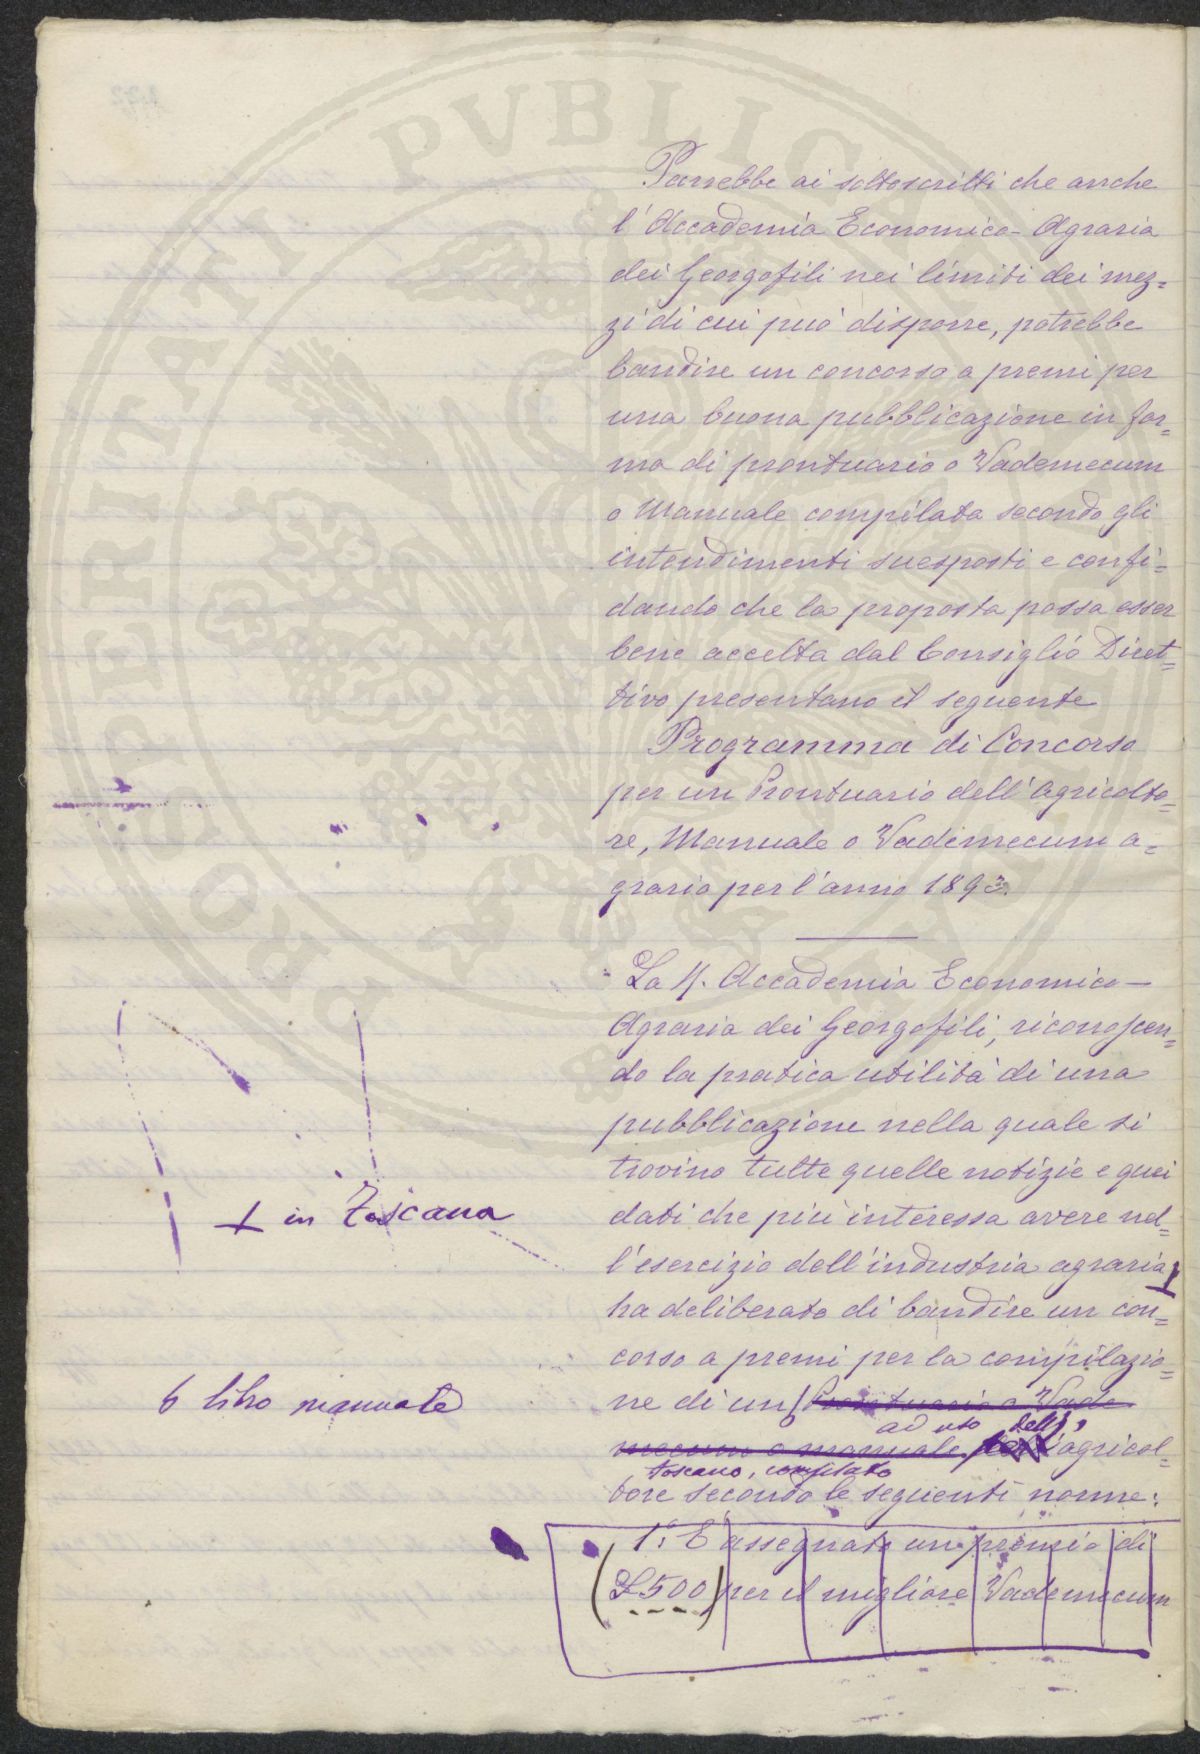 Parrebbe ai sottoscritti che anche
l'Accademia Economico-Agraria
dei Georgofili nei limiti dei mez=
zi di cui può disporre, potrebbe
bandire un concorso a premi per
una buona pubblicazione in for=
ma di prontuario o Vademecum
o Manuale compilata secondo gli
intendimenti suesposti e confi=
dando che la proposta possa esser
bene accetta dal Consiglio Diret=
tivo presentano il seguente
Programma di Concorso
per un Prontuario dell'Agricolto=
re, Manuale o Vademecum a=
grario per l'anno 1893.
La R. Accademia Economico-
Agraria dei Georgofili, riconoscen=
do la pratica utilità di una
pubblicazione nella quale si
trovino tutte quelle notizie e quei
in Toscana
dati che più interessa avere nel=
l'esercizio dell'industria agraria
ha deliberato di bandire un con=
corso a premi per la compilazio=
libro manuale
ne di un Prontuario o Vade
ad uso dell'
mecum o manuale per l'agricol=
toscano, compilato
tore secondo le seguenti norme:
1.° È assegnato un premio di
(£500) per il migliore Vademecum
PROSPERITATI PVBLICAE